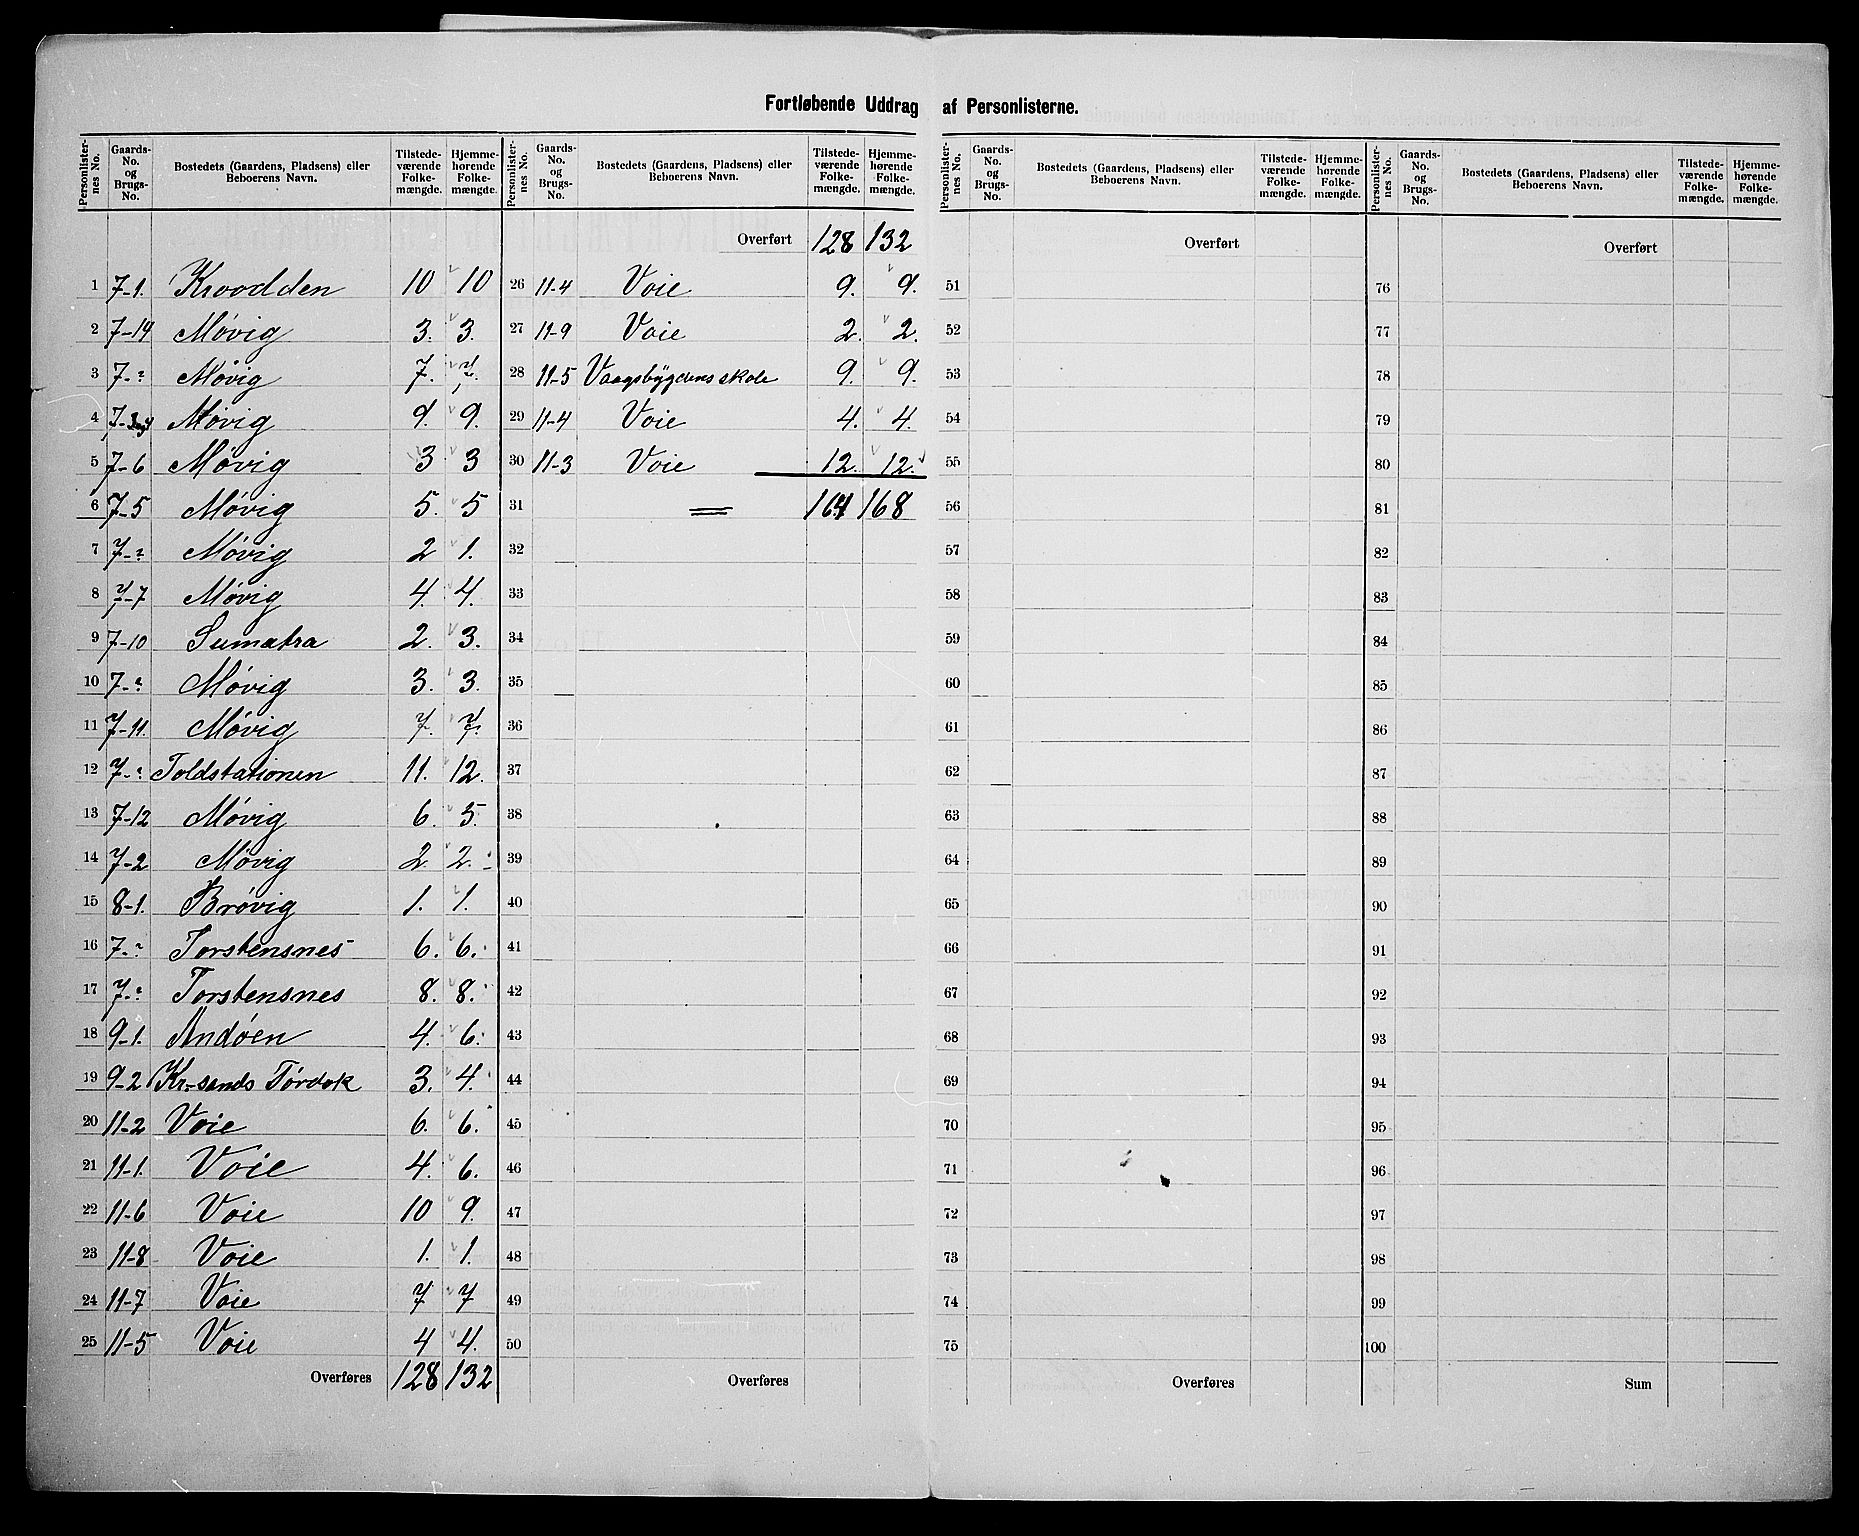 Fortløbende Uddrag af Personlisterne.
Personlisternes No. | Gaards-No. og Brugs-No. | Bostedets (Gaardens, Pladsens) eller Beboerens Navn. | Tilstedeværende Folkemængde. | Hjemmehørende Folkemængde.
1 7-1. Kroodden 10 10
2 7-14 Møvig 3. 3.
3 7-? Møvig 7. 7.
4 Møvig 9. 9.
5 7-6 Møvig 3 3
6 7-5 Møvig 5. 5
7 7-? Møvig 2 1.
8 7-7 Møvig 4. 4.
9 7-10 Sumatra 2. 3.
10 7-? Møvig 3. 3.
11 7-11. Møvig 7. 7.
12 7-? Toldstationen 11. 12.
13 7-12 Møvig 6. 5.
14 7-2 Møvig 2. 2.
15 8-1. Brøvig 1. 1.
16 7-? Torstensnes 6. 6.
17 7-? Torstensnes 8. 8.
18 9-1. Andøen 4. 6.
19 9-2 Kr-sands Tørdok 3. 4.
20 11-2 Voie 6. 6.
21 11-1. Voie 4. 6.
22 11-6 Voie 10 9.
23 11-8 Voie 1. 1.
24 11-7 Voie 7 7
25 11-5 Voie 4 4.
Overføres 128 132
Personlisternes No. | Gaards-No. og Brugs-No. | Bostedets (Gaardens, Pladsens) eller Beboerens Navn. | Tilstedeværende Folkemængde. | Hjemmehørende Folkemængde.
Overført 128 132
26 11-4 Voie 9. 9.
27 11-9 Voie 2. 2.
28 11-5 Vaagsbygdens skole 9. 9.
29 11-4 Voie 4. 4.
30 11-3 Voie 12. 12.
31 = 164 168
32
33
34
35
36
37
38
39
40
41
42
43
44
45
46
47
48
49
50
Overføres
Personlisternes No. | Gaards-No. og Brugs-No. | Bostedets (Gaardens, Pladsens) eller Beboerens Navn. | Tilstedeværende Folkemængde. | Hjemmehørende Folkemængde.
Overført
51
52
53
54
55
56
57
58
59
60
61
62
63
64
65
66
67
68
69
70
71
72
73
74
75
Overføres
Personlisternes No. | Gaards-No. og Brugs-No. | Bostedets (Gaardens, Pladsens) eller Beboerens Navn. | Tilstedeværende Folkemængde. | Hjemmehørende Folkemængde.
Overført
76
77
78
79
80
81
82
83
84
85
86
87
88
89
90
91
92
93
94
95
96
97
98
99
100
Sum